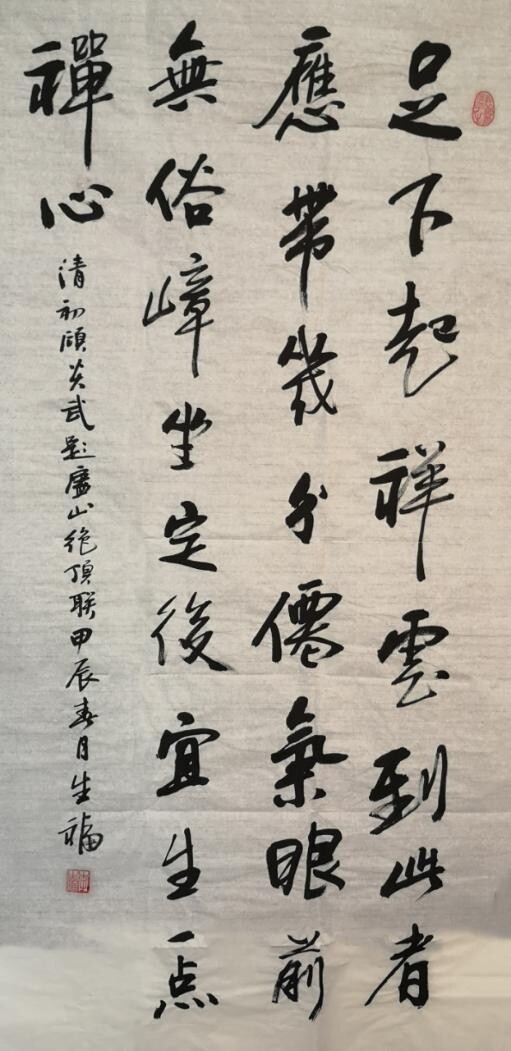 足下起祥雲到此者
應帶幾分僊氣眼前
無俗嶂坐定後宜生一点
禪心
清初顾炎武题廬山绝頂联甲辰春月生福